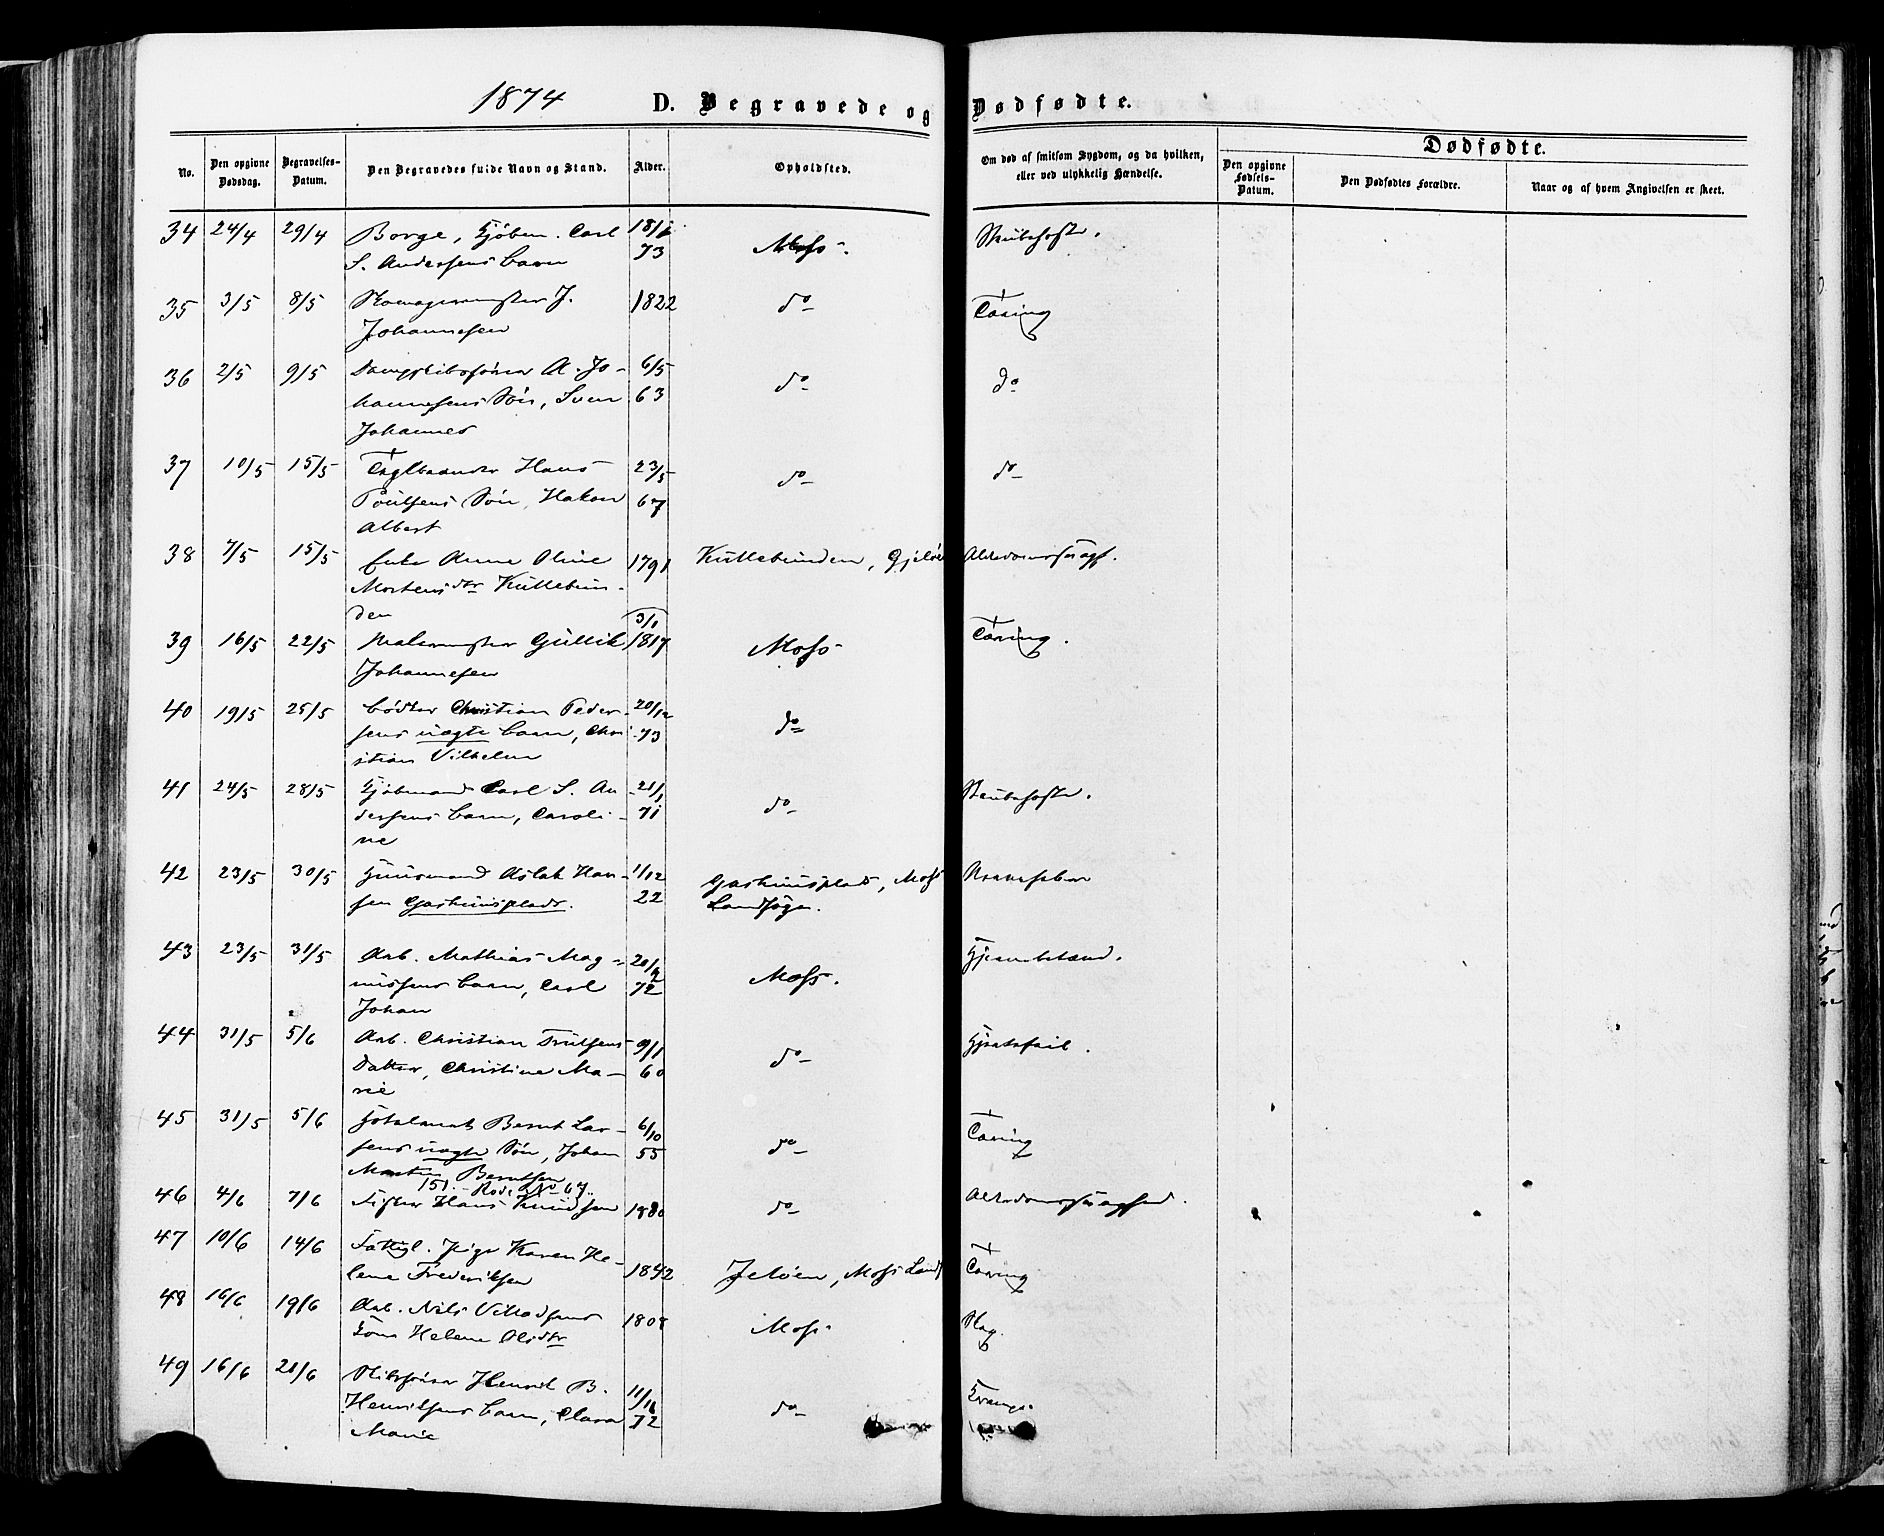 1874
D. Begravede og Dødfødte.
No. Den opgivne Dødsdag. Begravelses-Datum. Den Begravedes fulde Navn og Stand. Alder. Opholdsted. Om død af smitsom Sygdom, og da hvilken, eller ved ulykkelig Hændelse. Dødfødte.
Den opgivne Fødsels-Datum. Den Dødfødtes Forældre. Naar og af hvem Angivelsen er skeet.
34 24/4 29/4 Borge, Kjøbm. Carl Moss. Strubehoste.
S. Andersens Barn 73
35 3/5 8/5 Skomagermester J. 1822 do Tæring
Johannesen
36 2/5 9/5 Dampskibsfører A. Jo- 6/5 do do
hannesens Søn, Sven 63
Johannes
37 10/5 15/5 Teglbrænder Hans 23/5 do do
Poulsens Søn, Hakon 67
Albert
38 7/5 15/5 Enke Anne Oline 1791 Kullebunden, Alderdomssvagh.
Mortensdtr Kullebun-
den
39 16/5 22/5 Malermester Gullik 3/1 1817 Moss Tæring.
Johannesen
40 19/5 25/5 Bødker Christian Peder- 20/12 do
sens uægte Barn, Chri- 73
stian Vilhelm
41 24/5 28/5 Kjøbmand Carl S. An- 21/1 do Strubehoste.
dersens Barn, Caroli- 71
ne
42 23/5 30/5 Huusmand Aslak Han- 1/12 Gashuusplads, Moss
sen Gashuusplads. 22 Landsogn.
43 23/5 31/5 Arb. Mathias Mag- Moss. Hjernebetænd.
nussens Barn, Carl 72
Johan
44 31/5 5/6 Arb. Christian Trulsens 9/1 do Hjertefeil.
Datter, Christine Ma- 60
rie
45 31/5 5/6 Bernt Lar- 6/10 do Tæring
sens uægte Søn, Johan 55
Martin Berntsen
151. Rode No 67.
46 4/6 7/6 Fisker Hans Knudsen do Alderdomssvaghed.
47 10/6 14/6 Fattigl. Pige Karen He- 1842 Jeløen, Moss Land Tæring
lene Frederiksen
48 16/6 19/6 Arb. Nils Villadsens 1808 Moss Slag.
Kone Helene Olsdtr
49 16/6 21/6 Skibsfører Henrik B. 11/11 do Krampe.
Henriksens Barn, Clara 72
Marie